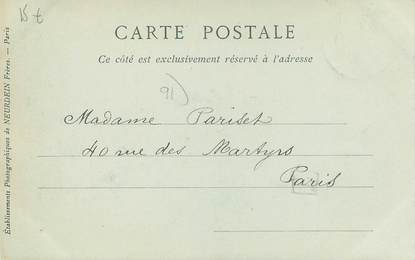 CARTE POSTALE
Ce côté est exclusivement réservé à l'adresse
91)
Madame Pariset
40 rue des Martyrs
Paris
Établissements Photographiques de NEURDEIN Frères. — Paris